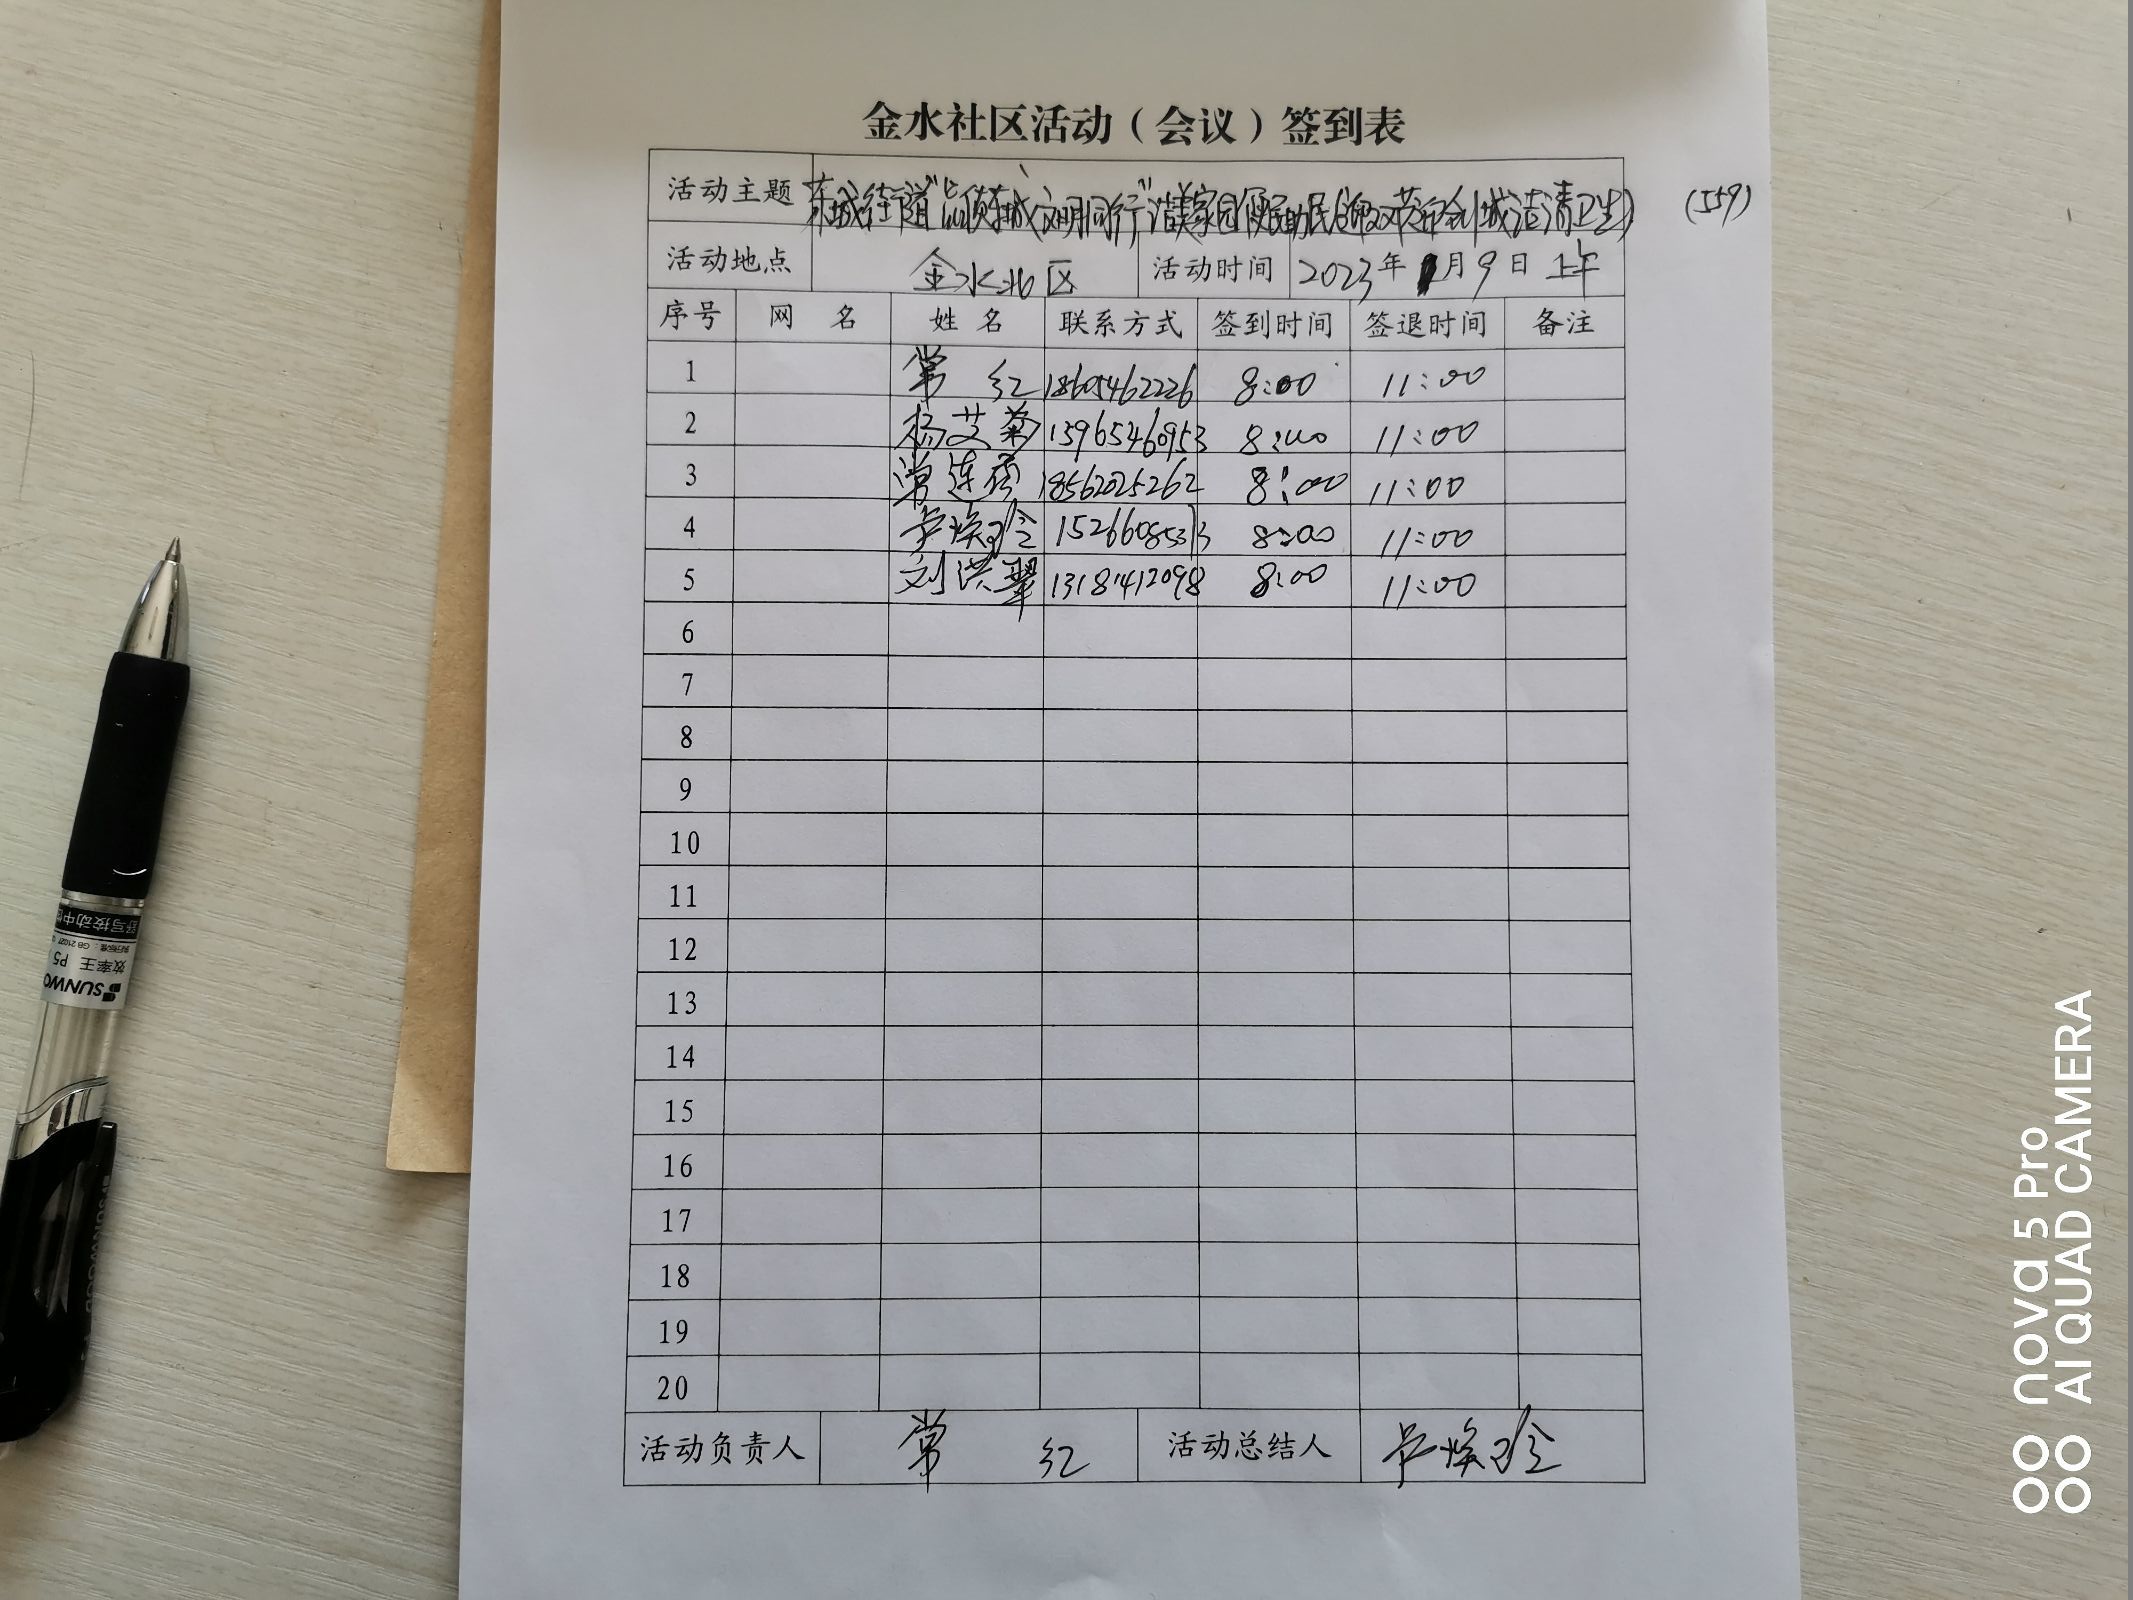 金水社区活动（会议）签到表
活动主题 东城街道"品质东城 文明同行"洁美家园便民助民(迎双节迎创城洁清卫生) (559)
活动地点 金水北区 活动时间 2023年 月9日 上午
序号 网 名 姓 名 联系方式 签到时间 签退时间 备注
1 常 红 18605462226 8:00 11:00
2 杨艾菊 15965460953 8:00 11:00
3 常连秀 18562025262 8:00 11:00
4 卢焕玲 15266085313 8:00 11:00
5 刘洪翠 13181412098 8:00 11:00
6
7
8
9
10
11
12
13
14
15
16
17
18
19
20
活动负责人 常 红 活动总结人 卢焕玲
SUNWO
效率王 P5
GB 21027
舒写按动中性
nova 5 Pro
AI QUAD CAMERA